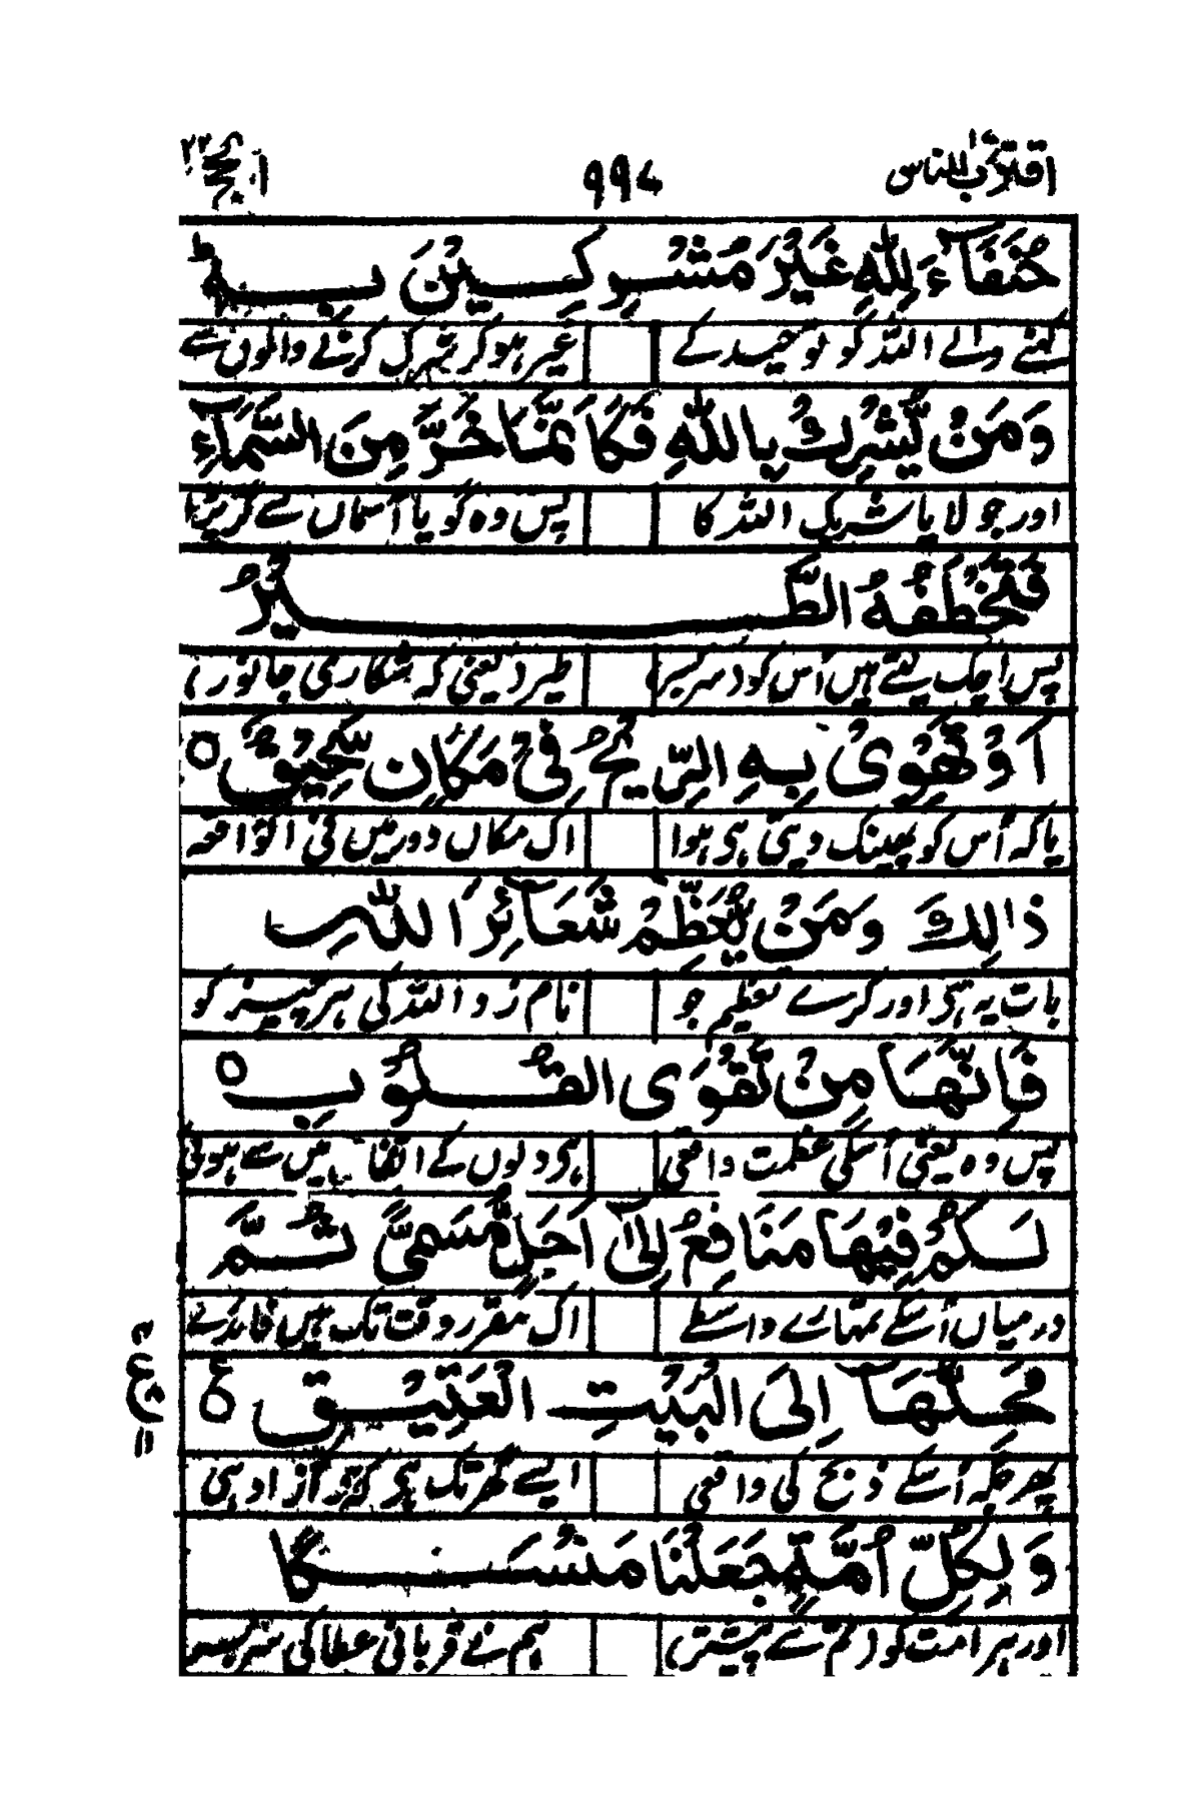 اقترب للناس ١٧ ٩٩٧ الحج ٢٢
حُنَفَآءَ لِلّٰهِ غَيْرَ مُشْرِكِيْنَ بِهٖ ؕ
کہنے والے اللہ کو توحید کے غیر ہو کر شرک کرنے والوں سے
وَمَنْ يُّشْرِكْ بِاللّٰهِ فَكَاَنَّمَا خَرَّ مِنَ السَّمَآءِ
اور جو لا یا شریک اللہ کا پس وہ گویا آسماں سے گر پڑا
فَتَخْطَفُهُ الطَّيْرُ
پس اچک لیتے ہیں اُس کو طیر (یعنی کہ شکاری جانور)
اَوْ تَهْوِیْ بِهِ الرِّيْحُ فِیْ مَكَانٍ سَحِيْقٍ ○
یا کہ اُس کو پھینک دیتی ہی ہوا اک مکاں دور میں فی الواقعہ
ذٰلِكَ وَمَنْ يُّعَظِّمْ شَعَآئِرَ اللّٰهِ
بات یہ ہی اور کرے تعظیم جو نام زد اللہ کی ہر چیز کو
فَاِنَّهَا مِنْ تَقْوَی الْقُلُوْبِ ○
پس وہ یعنی اُسکی عظمت واقعی ہی دلوں کے اتقا میں سے ہوئی
لَكُمْ فِيْهَا مَنَافِعُ اِلٰۤی اَجَلٍ مُّسَمًّی ثُمَّ
درمیاں اُسکے تمہارے واسطے اک مقرر وقت تک ہیں فائدے
مَحِلُّهَآ اِلَی الْبَيْتِ الْعَتِيْقِ ○ ع
پھر جگہ اُسکے ذبح کی واقعی ایسے گھر تک ہی کہ جو آزاد ہی
ع
١١
وَلِكُلِّ اُمَّةٍ جَعَلْنَا مَنْسَكًا
اور ہر امت کو (تم سے پیشتر) ہم نے قربانی عطا کی سر بسر